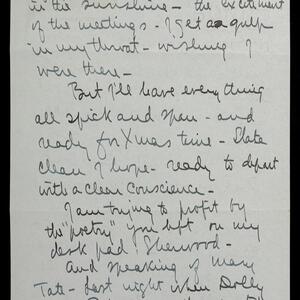 in the sunshine - the excitement
of the meetings - I get a gulp
in my throat - wishing I
were there -
But I'll leave everything
all spick and span - and
ready for Xmas time - Slate
clean I hope - ready to depart
with a clean conscience -
I am trying to profit by
the "poetry" you left on my
desk pad, Sherwood -
And speaking of Mary
Tate - Last night when Dolly